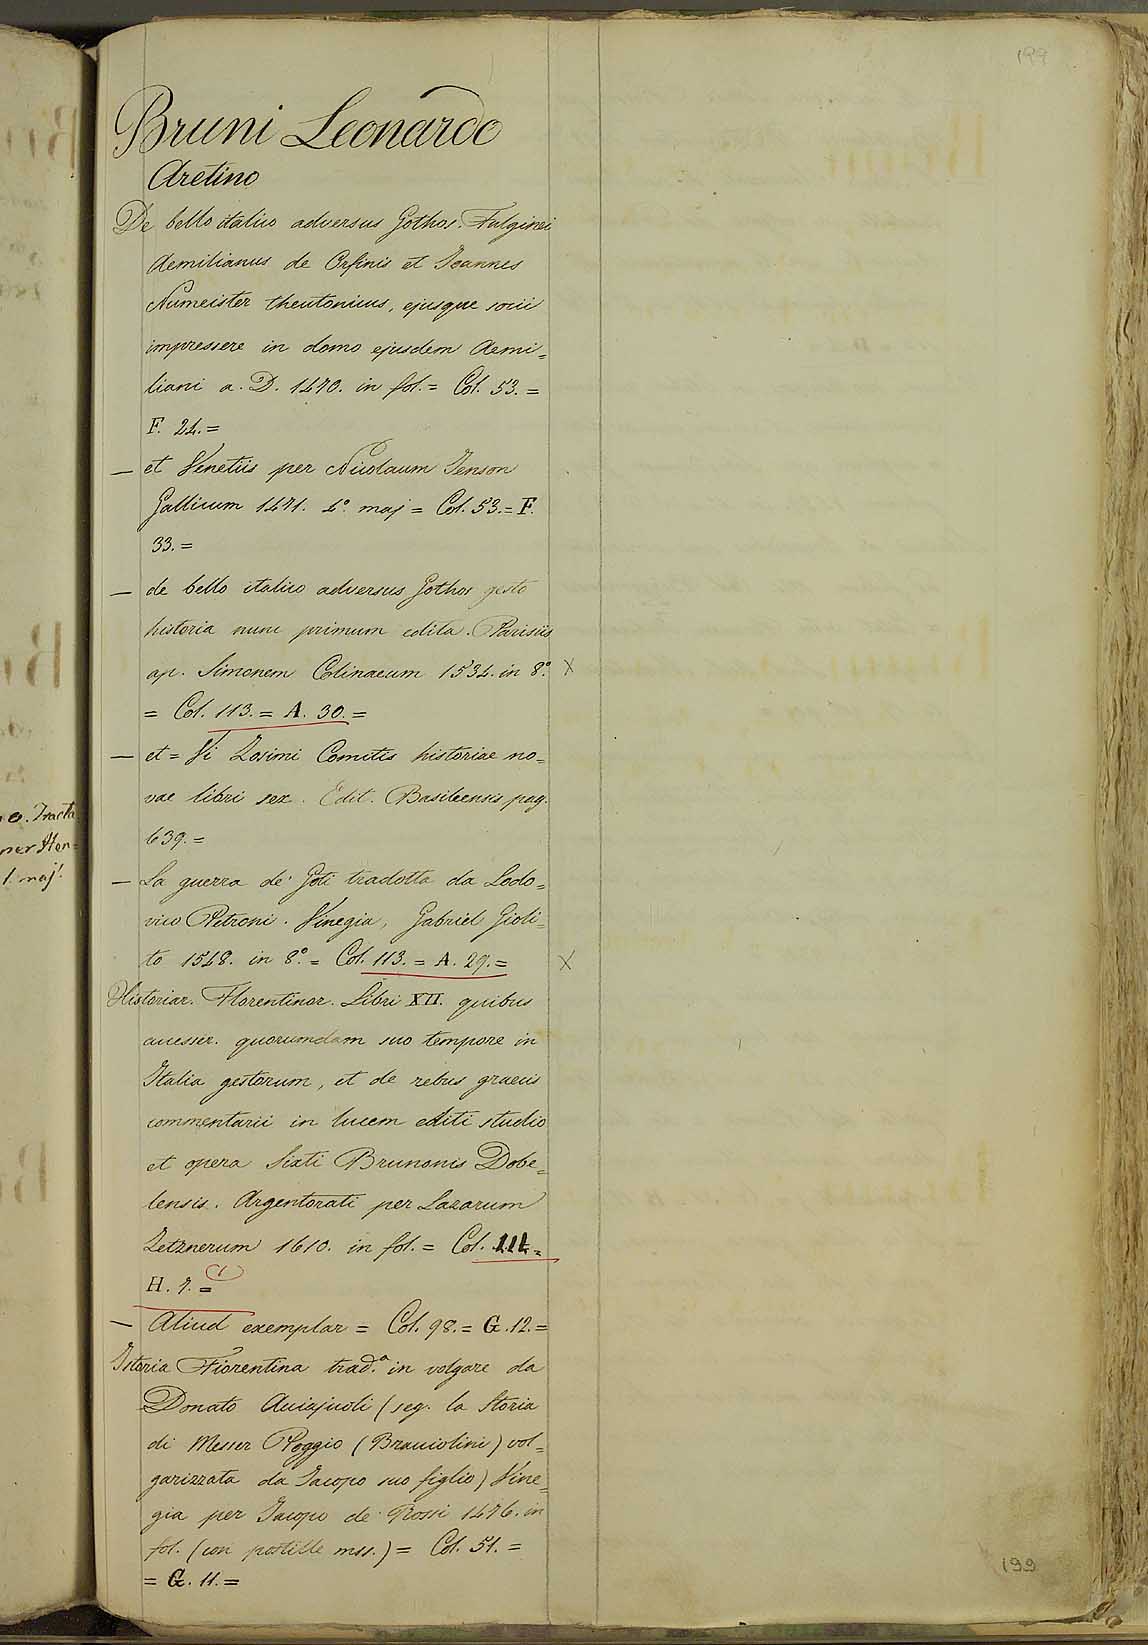 199
Bruni Leonardo
Aretino
De bello italico adversus Gothos. Fulginei
Aemilianus de Orfinis et Joannes
Numeister theutonicus, ejusque socii
impressere in domo ejusdem Aemi=
liani a. D. 1470. in fol. = Col. 53. =
F. 24. =
— et Venetiis per Nicolaum Jenson
Gallicum 1471. 4.° maj = Col. 53. = F.
33. =
— de bello italico adversus Gothos gesto
historia nunc primum edita. Parisiis
ap. Simonem Colinaeum 1534. in 8.° X
= Col. 113. = A. 30. =
— et = Vi Zosimi Comitis historiae no=
vae libri sex. Edit. Basileensis pag.
639. =
— La guerra de' Goti tradotta da Lodo=
vico Petroni. Vinegia, Gabriel Gioli=
to 1548. in 8.° = Col. 113. = A. 29. = X
Historiar. Florentinar. Libri XII. quibus
accesser. quorumdam suo tempore in
Italia gestorum, et de rebus graecis
commentarii in lucem editi studio
et opera Sixti Brunonis Dobe=
lensis. Argentorati per Lazarum
Zetznerum 1610. in fol. = Col. 114. =
H. 7. =
— Aliud exemplar = Col. 98. = G. 12. =
Istoria Fiorentina trad.a in volgare da
Donato Acciajuoli (seg. la Storia
di Messer Poggio (Bracciolini) vol=
garizzata da Jacopo suo figlio) Vine=
gia per Jacopo de' Rossi 1476. in
fol. (con postille mss.) = Col. 51. =
= G. 11. =
199
o. Tracta
ner Hen=
1. maj.